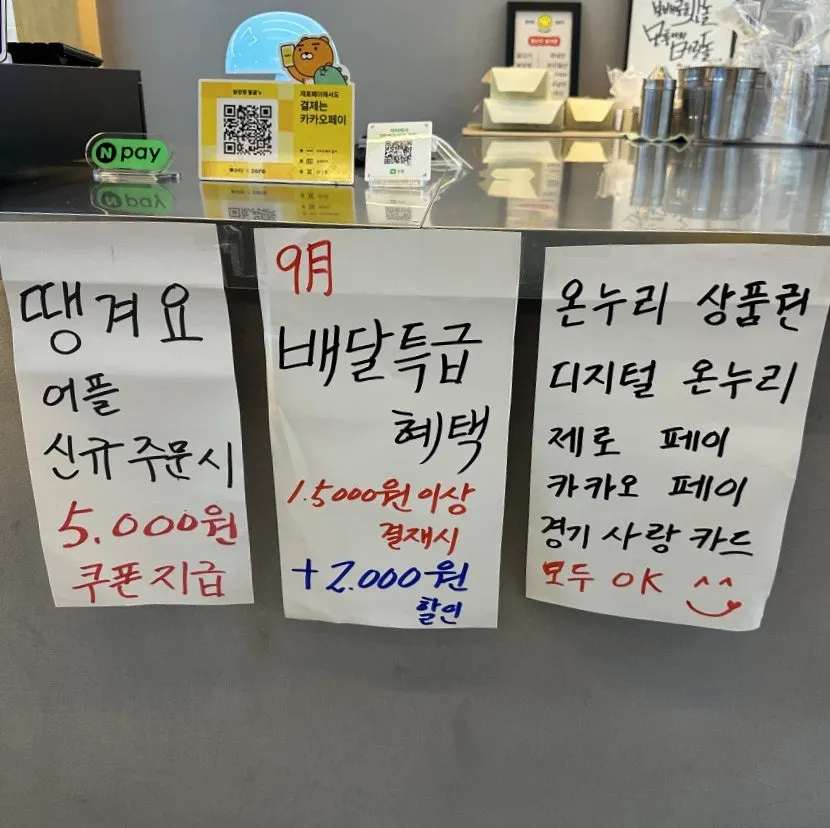 N pay
제로페이에서도
결제는
카카오페이
땡겨요
어플
신규 주문시
5.000원
쿠폰 지급
9月
배달특급
혜택
1.5000원 이상
결재시
+2.000원
할인
온누리 상품권
디지털 온누리
제로 페이
카카오 페이
경기 사랑 카드
모두 OK ^^